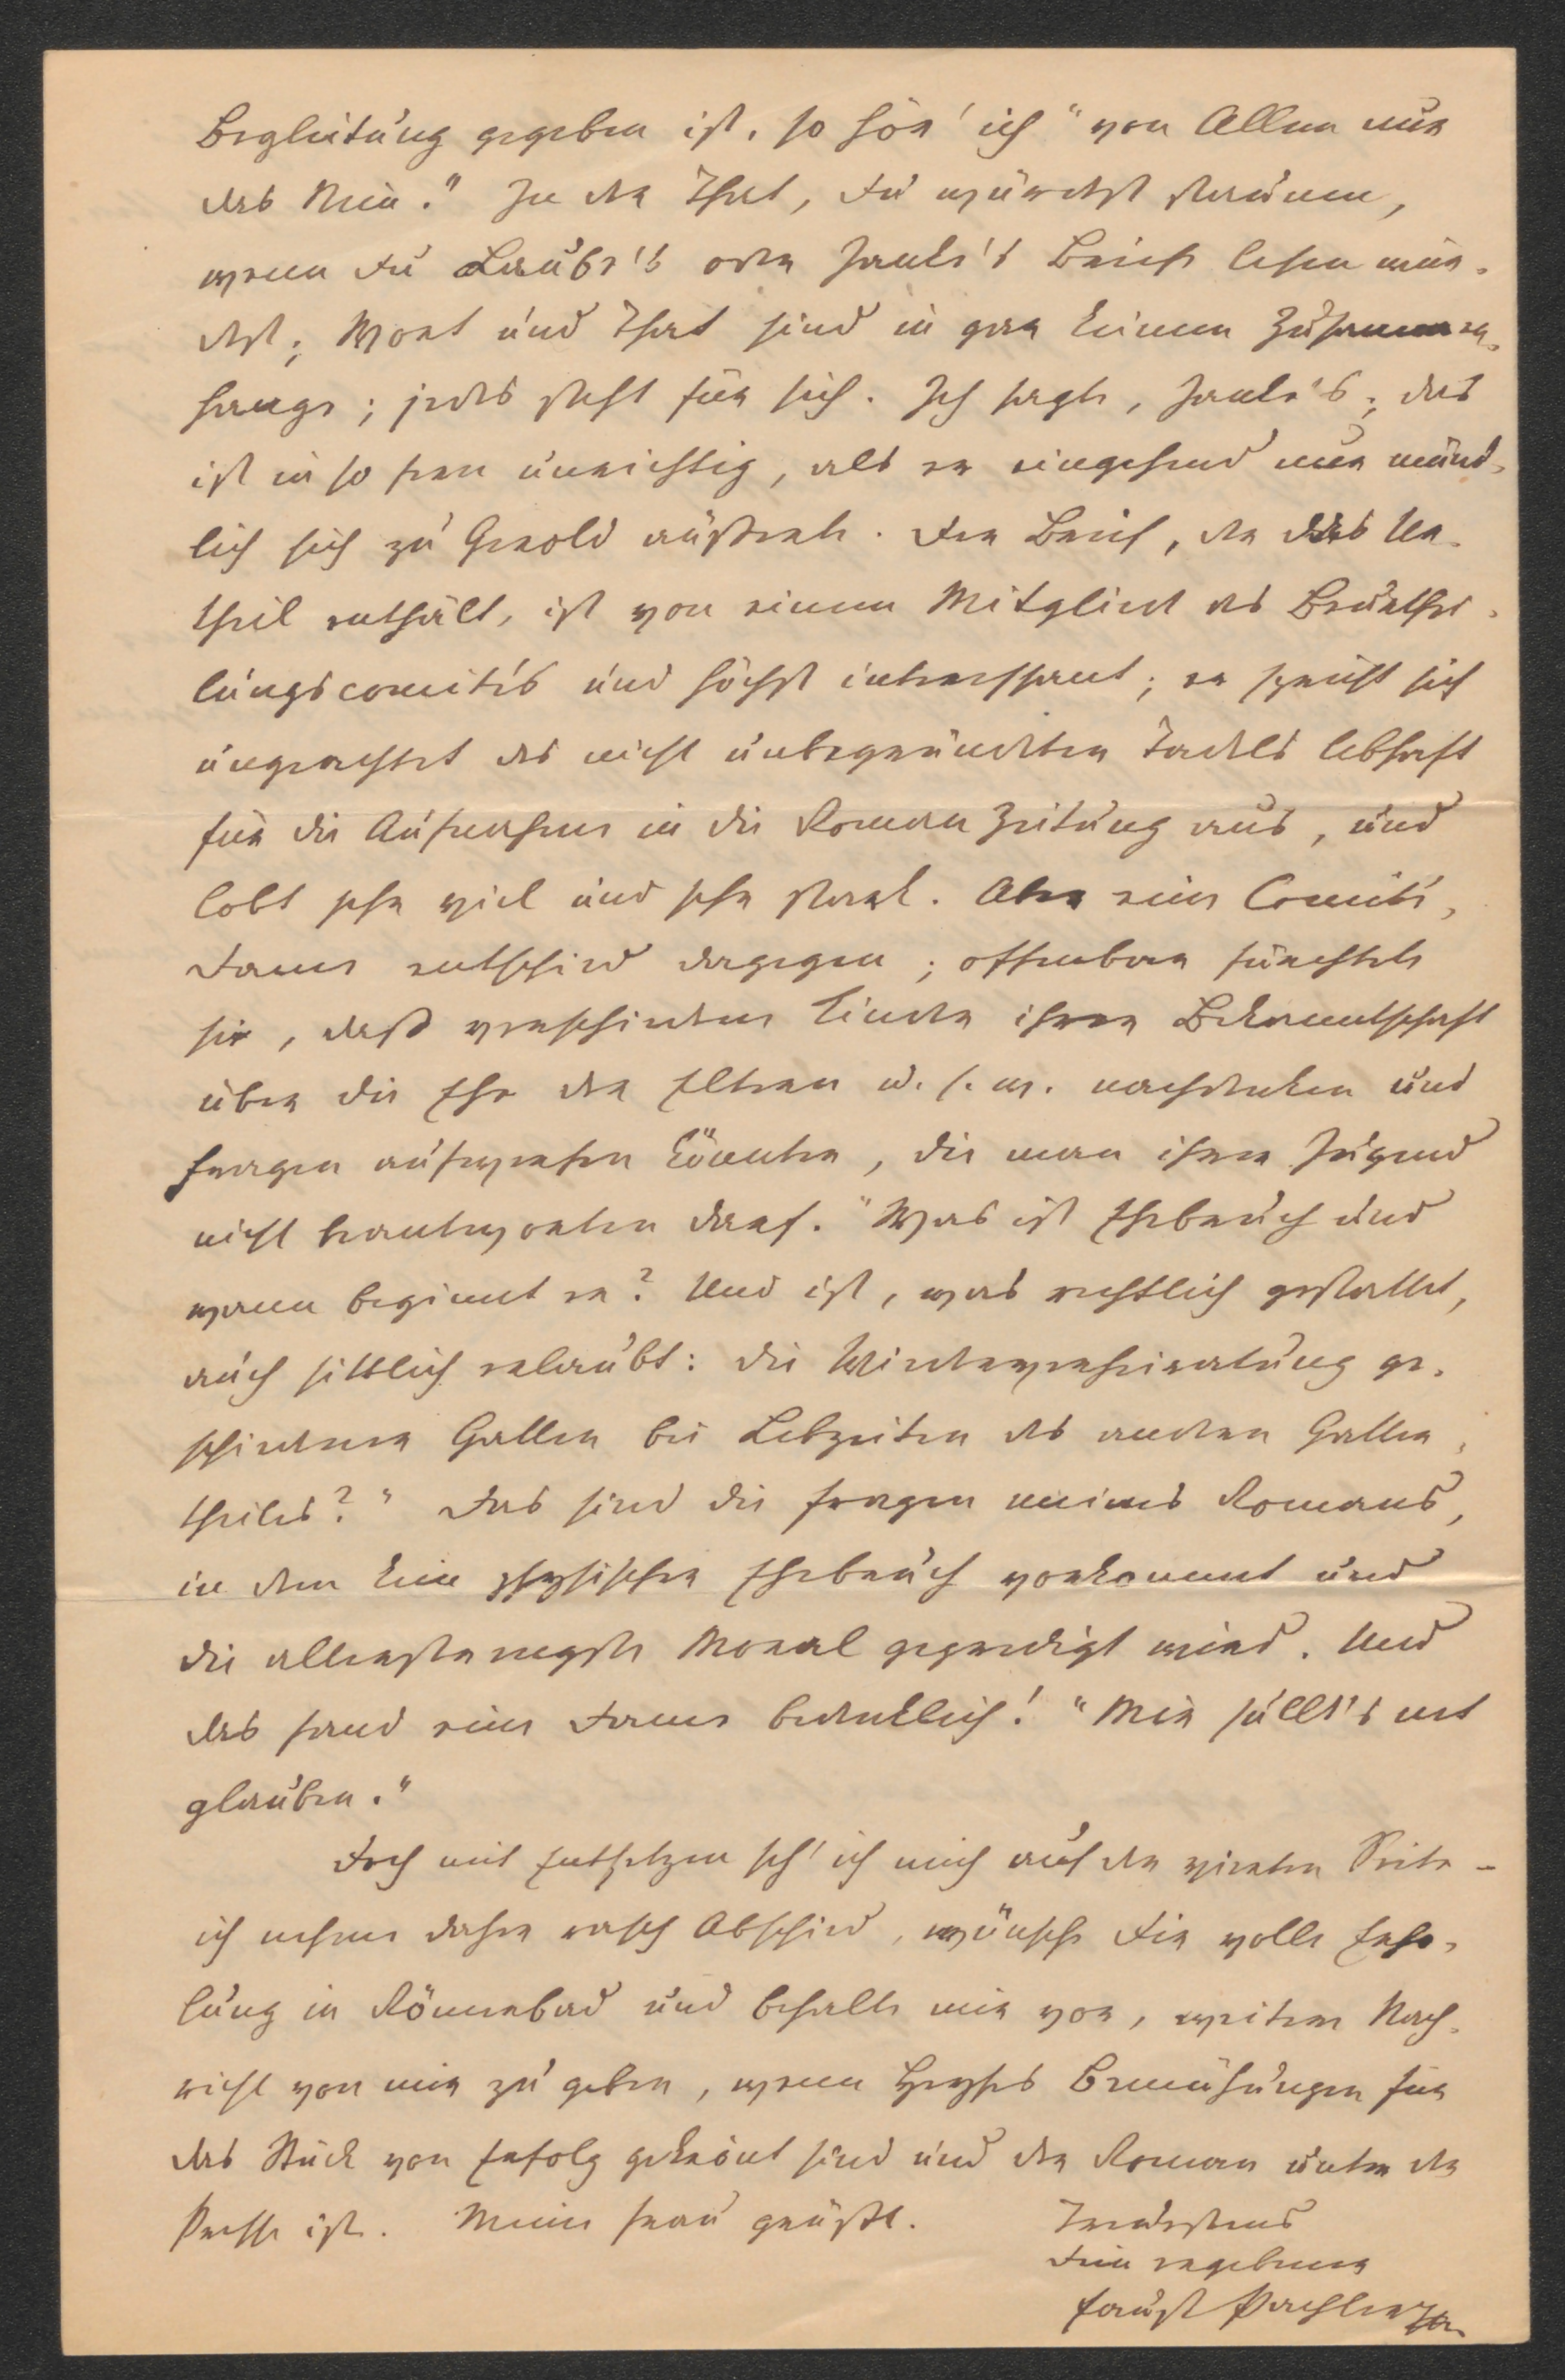 Begleitung gegeben ist, so hör' ich "von Allem nur
das Nein." In der That, Du würdest staunen,
wenn Du Laube's oder Janke's Briefe lesen wür-
dest; Wort und That sind in gar keinem Zusammen-
hange; jedes steht für sich. Ich sagte, Janke's; das
ist in so fern unrichtig, als er eingehend nur münd-
lich sich zu Gerold äußerte. Der Brief, der das Ur-
theil enthält, ist von einem Mitglied des Beurthei-
lungscomité's und höchst interessant; er spricht sich
ungeachtet des nicht unbegründeten Tadels lebhaft
für die Aufnahme in die Roman Zeitung aus, und
lobt sehr viel und sehr stark. Aber eine Comité-
Dame entschied dagegen; offenbar fürchtete
sie, daß verschiedene Kinder ihrer Bekanntschaft
über die Ehe der Eltern u. s. w. nachdenken und
Fragen aufwerfen könnten, die man ihrer Jugend
nicht beantworten darf. "Was ist Ehebruch und
wann beginnt er? Und ist, was rechtlich gestattet,
auch sittlich erlaubt: die Wiederverheiratung ge-
schiedener Gatten bei Lebzeiten des andern Gatten-
theiles?" Das sind die Fragen meines Romans,
in dem kein physischer Ehebruch vorkommt und
die allerstrengste Moral gepredigt wird. Und
das fand eine Dame bedenklich! "Mir fällt's net
glauben."
Doch mit Entsetzen seh' ich mich auf der vierten Seite -
ich nehme daher rasch Abschied, wünsche Dir volle Erho-
lung in Römerbad und behalte mir vor, weitere Nach-
richt von mir zu geben, wenn Heyses Bemühungen für
das Stück von Erfolg gekrönt sind und der Roman unter der
Presse ist. Meine Frau grüßt. Treuestens
Dein ergebener
Faust Pachler